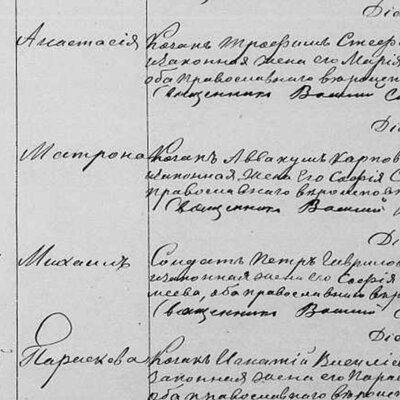 Діа
Анастасія Козакъ Трофимъ Стеф
и законная жена его Марія
оба православнаго вѣроисп
(Священникъ Василій С
Діа
Матрона Козакъ Аввакумъ Карпов
и законная жена его Софія С
православнаго вѣроисповѣ
(Священникъ Василій
Діа
Михаилъ Солдатъ Петръ Гаврилов
и законная жена его Софія
меева, оба православнаго вѣр
(Священникъ Василій С
Діа
Параскева Козакъ Игнатій Василіе
законная жена его Парас
оба православнаго вѣроисп